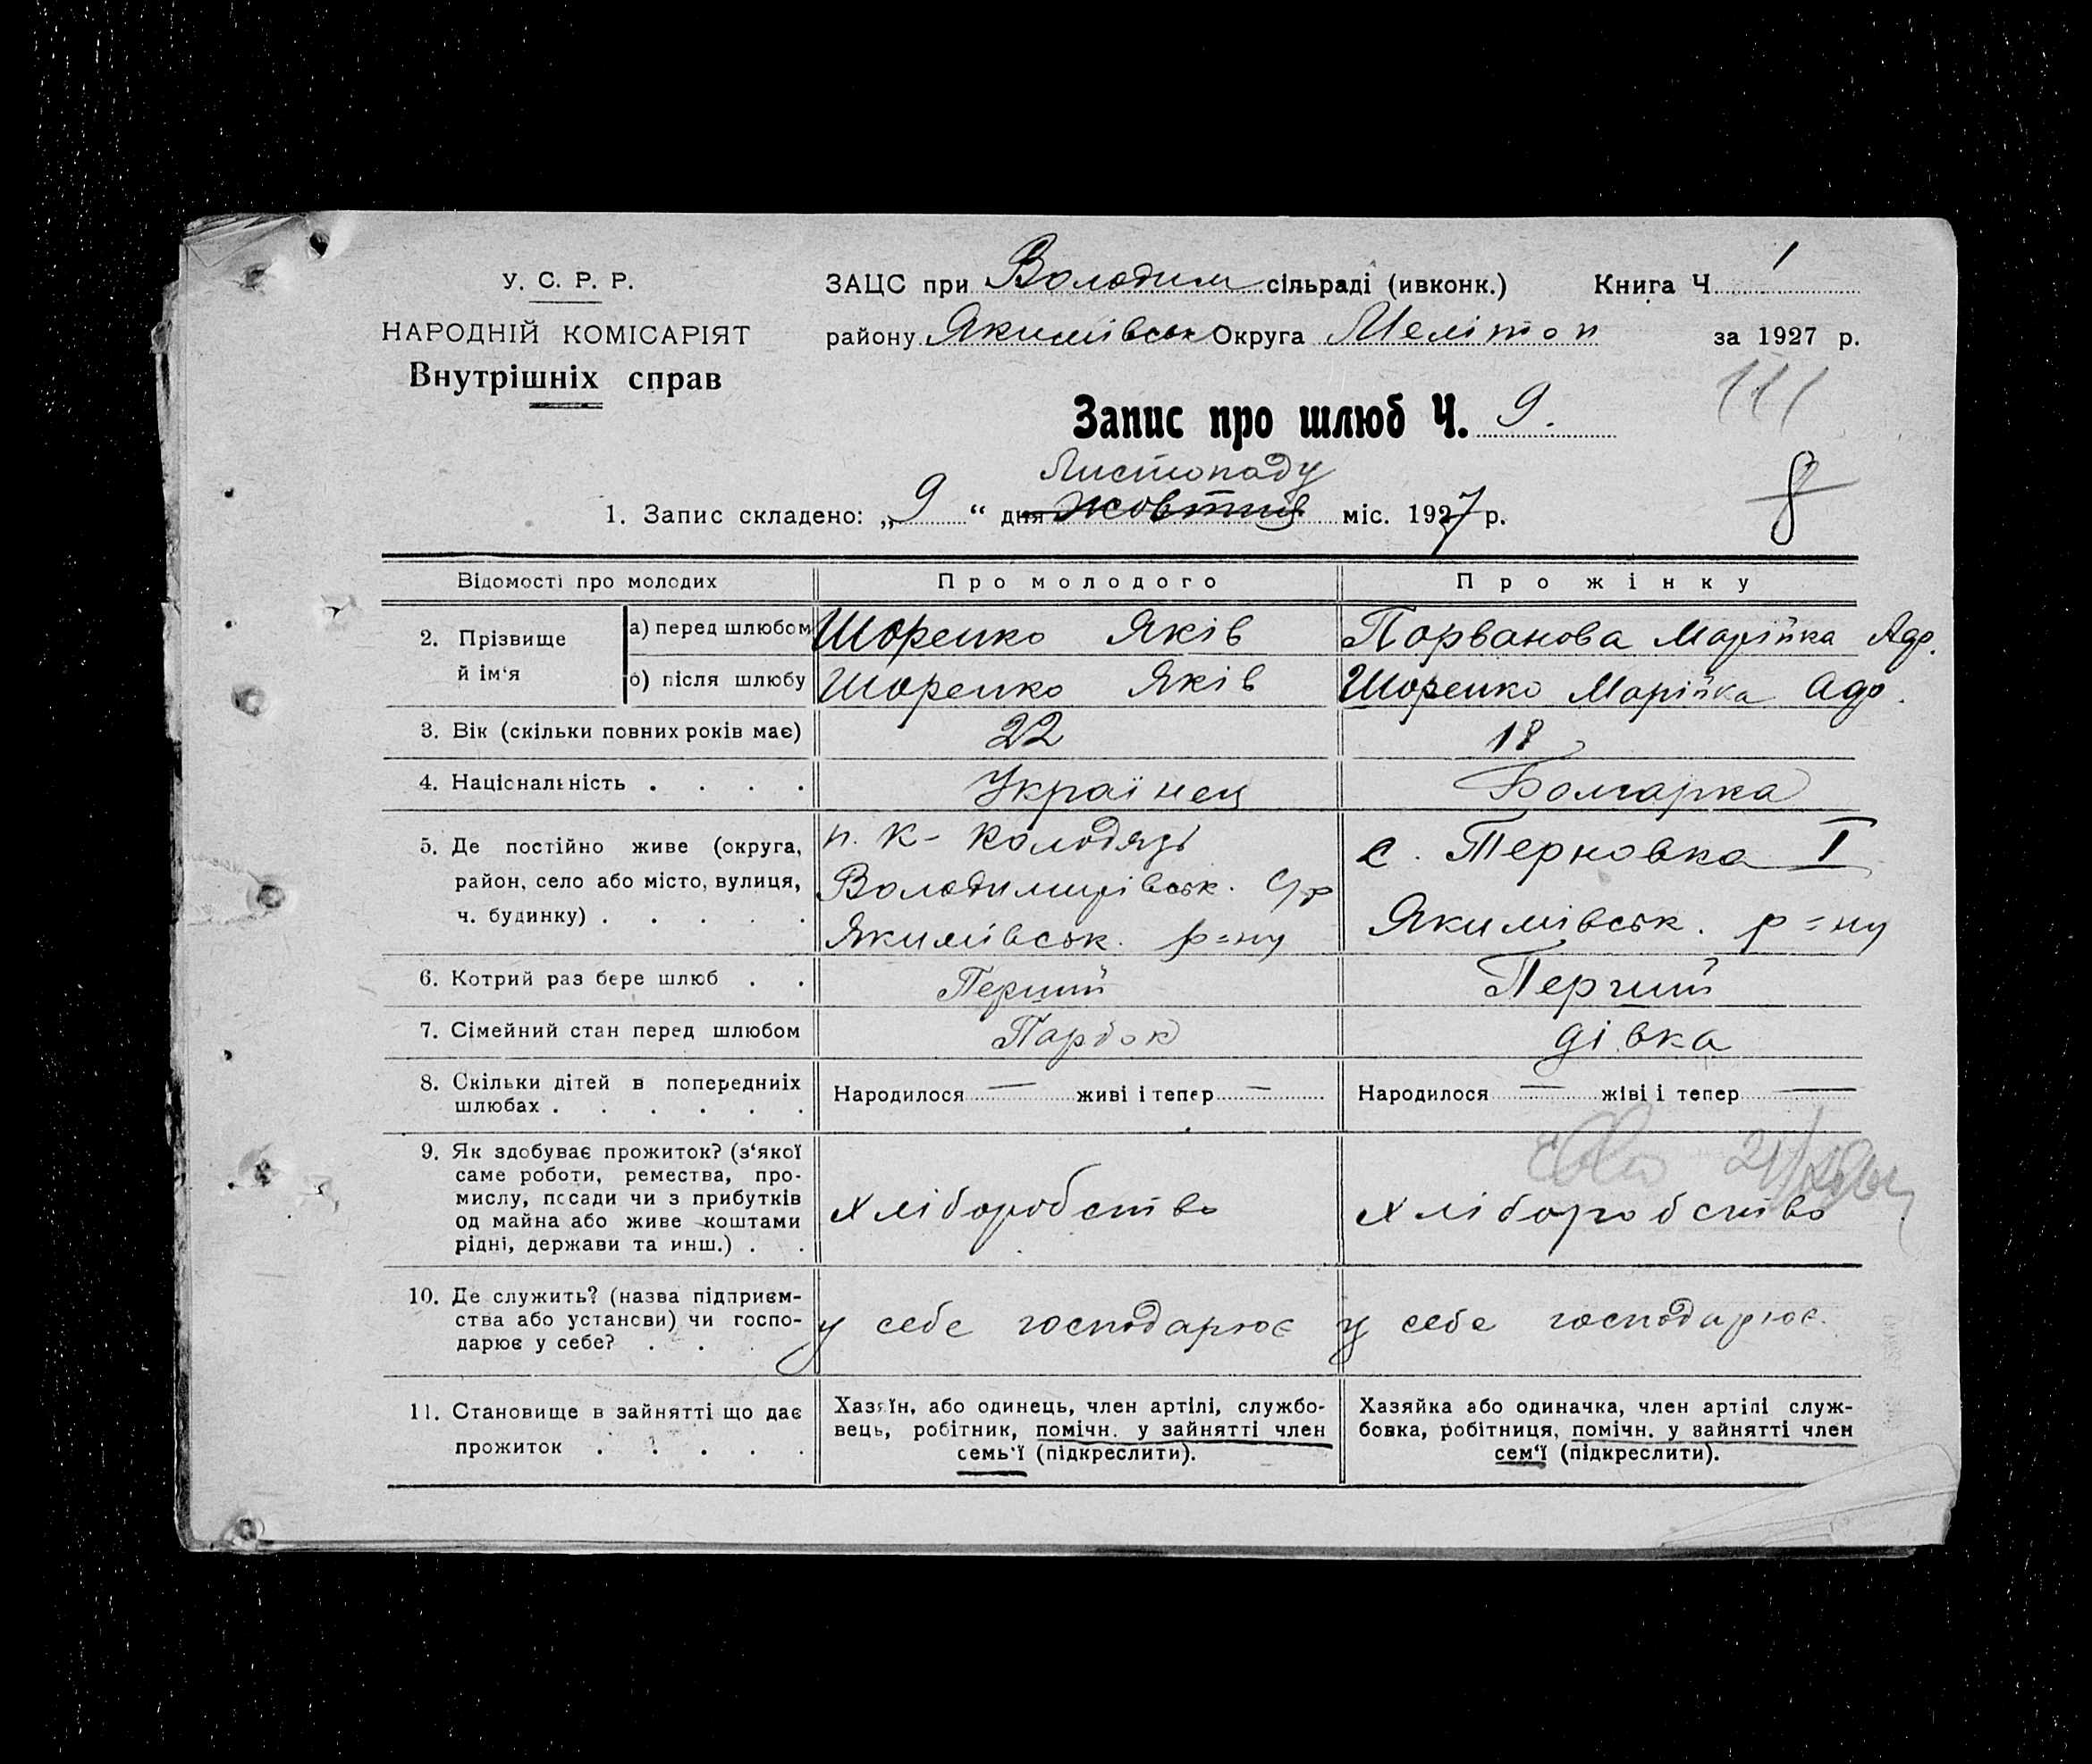 У. С. Р. Р.
НАРОДНІЙ КОМІСАРІЯТ
Внутрішніх справ
ЗАЦС при Володим сільраді (ивконк.) Книга Ч 1
району Якимівськ Округа Меліто п за 1927 р.
111
Запис про шлюб Ч. 9.
Листопаду
1. Запис складено: „9“ дня Жовтня міс. 1927 р.
8
Відомості про молодих Про молодого Про жінку
2. Прізвище й ім'я
а) перед шлюбом Шоренко Яків Порванова Марійка Адр.
б) після шлюбу Шоренко Яків Шоренко Марійка Адр.
3. Вік (скільки повних років має) 22 18
4. Національність . . . . Українец Болгарка
5. Де постійно живе (округа, район, село або місто, вулиця, ч. будинку) . . . . .
п. К- Колодязі
Володимирівськ. С/р
Якимівськ. р=ну
с. Терновка I
Якимівськ. р=ну
6. Котрий раз бере шлюб . . Перший Перший
7. Сімейний стан перед шлюбом Парбок дівка
8. Скільки дітей в попередниїх шлюбах . . . . . .
Народилося — живі і тепер —
Народилося — жіві і тепер —
9. Як здобуває прожиток? (з'якої
саме роботи, ремества, про-
мислу, посади чи з прибутків
од майна або живе коштами
рідні, держави та инш.) . .
хліборобство
хліборобство
10. Де служить? (назва підприєм-
ства або установи) чи госпо-
дарює у себе? . .
у себе господарює
у себе господарює.
11. Становище в зайнятті що дає
прожиток . . . . .
Хазяїн, або одинець, член артілі, службо-
вець, робітник, помічн. у зайнятті член
семь'ї (підкреслити).
Хазяйка або одиначка, член артілі служ-
бовка, робітниця, помічн. у зайнятті член
сем'ї (підкреслити).